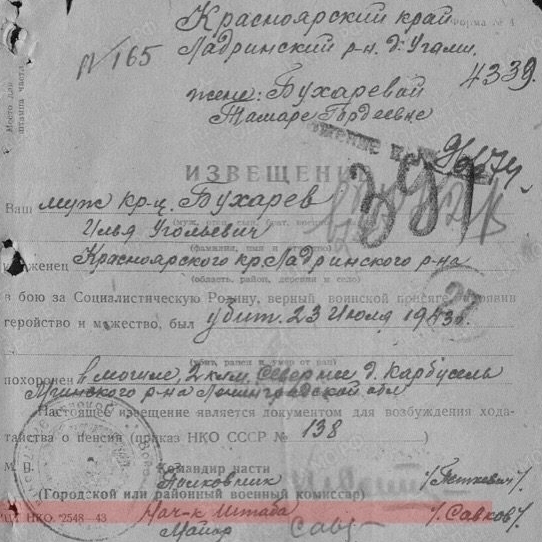 Красноярский край
Форма № 4
Ладринский р-н. д. Угами.
№ 165
4339.
жене: Бухаревой
Тамаре Гордеевне
Место для
штампа части
ИЗВЕЩЕНИ
391
27
Ваш муж кр-ц. Бухарев
Илья Угольевич
(фамилия, имя и отчество)
женец Красноярского кр. Ладринского р-на
(область, район, деревня и село)
в бою за Социалистическую Родину, верный воинской присяге
геройство и мужество, был убит 23 июля 1943г.
(убит, ранен и умер от ран)
похоронен в могиле, 2 клм. Севернее д. Карбусель
Мгинского р-на Ленинградской обл
Настоящее извещение является документом для возбуждения хода-
тайства о пенсии (приказ НКО СССР № 138 )
М. П.
Командир части
Полковник
/Петкевич/.
(Городской или районный военный комиссар)
Нач-к Штаба
/.Савков/.
НКО. 2548—43
Майор